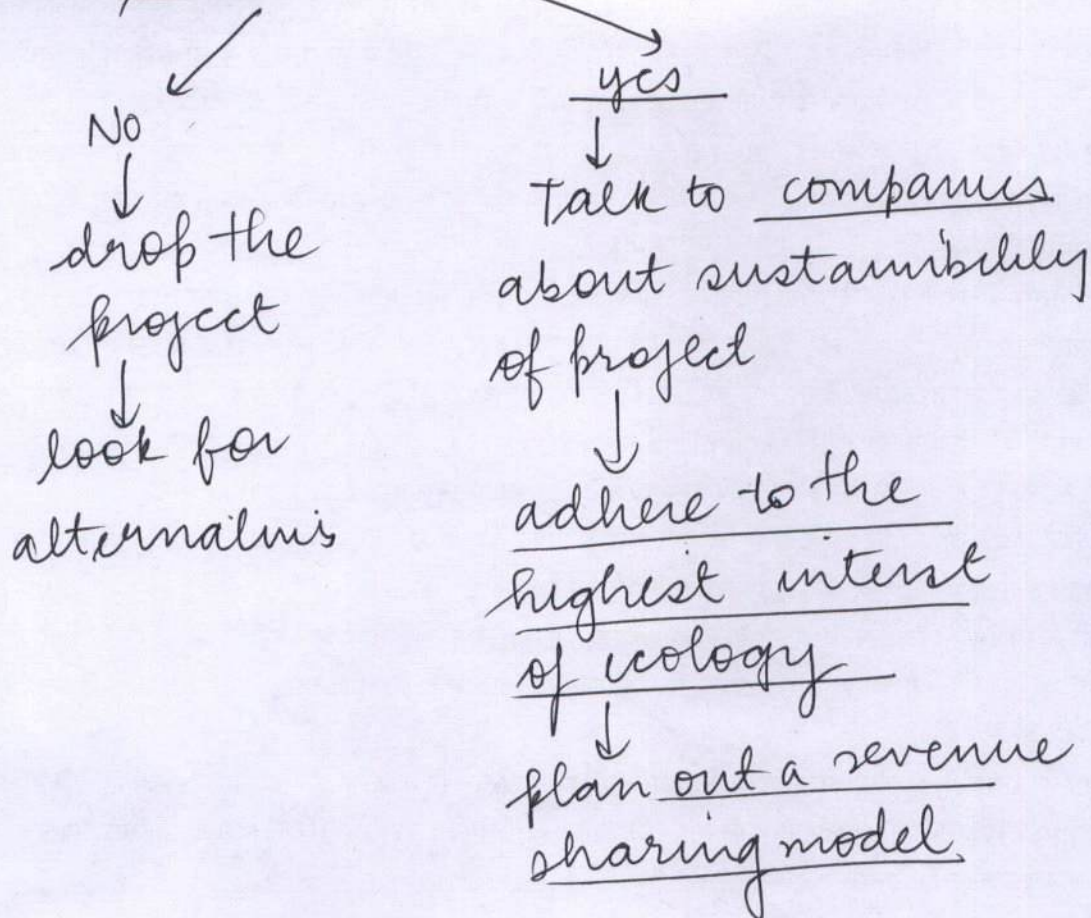 No
drop the
project
look for
alternatives
yes
Talk to companies
about sustainibility
of project
adhere to the
highest interst
of ecology
plan out a revenue
sharing model